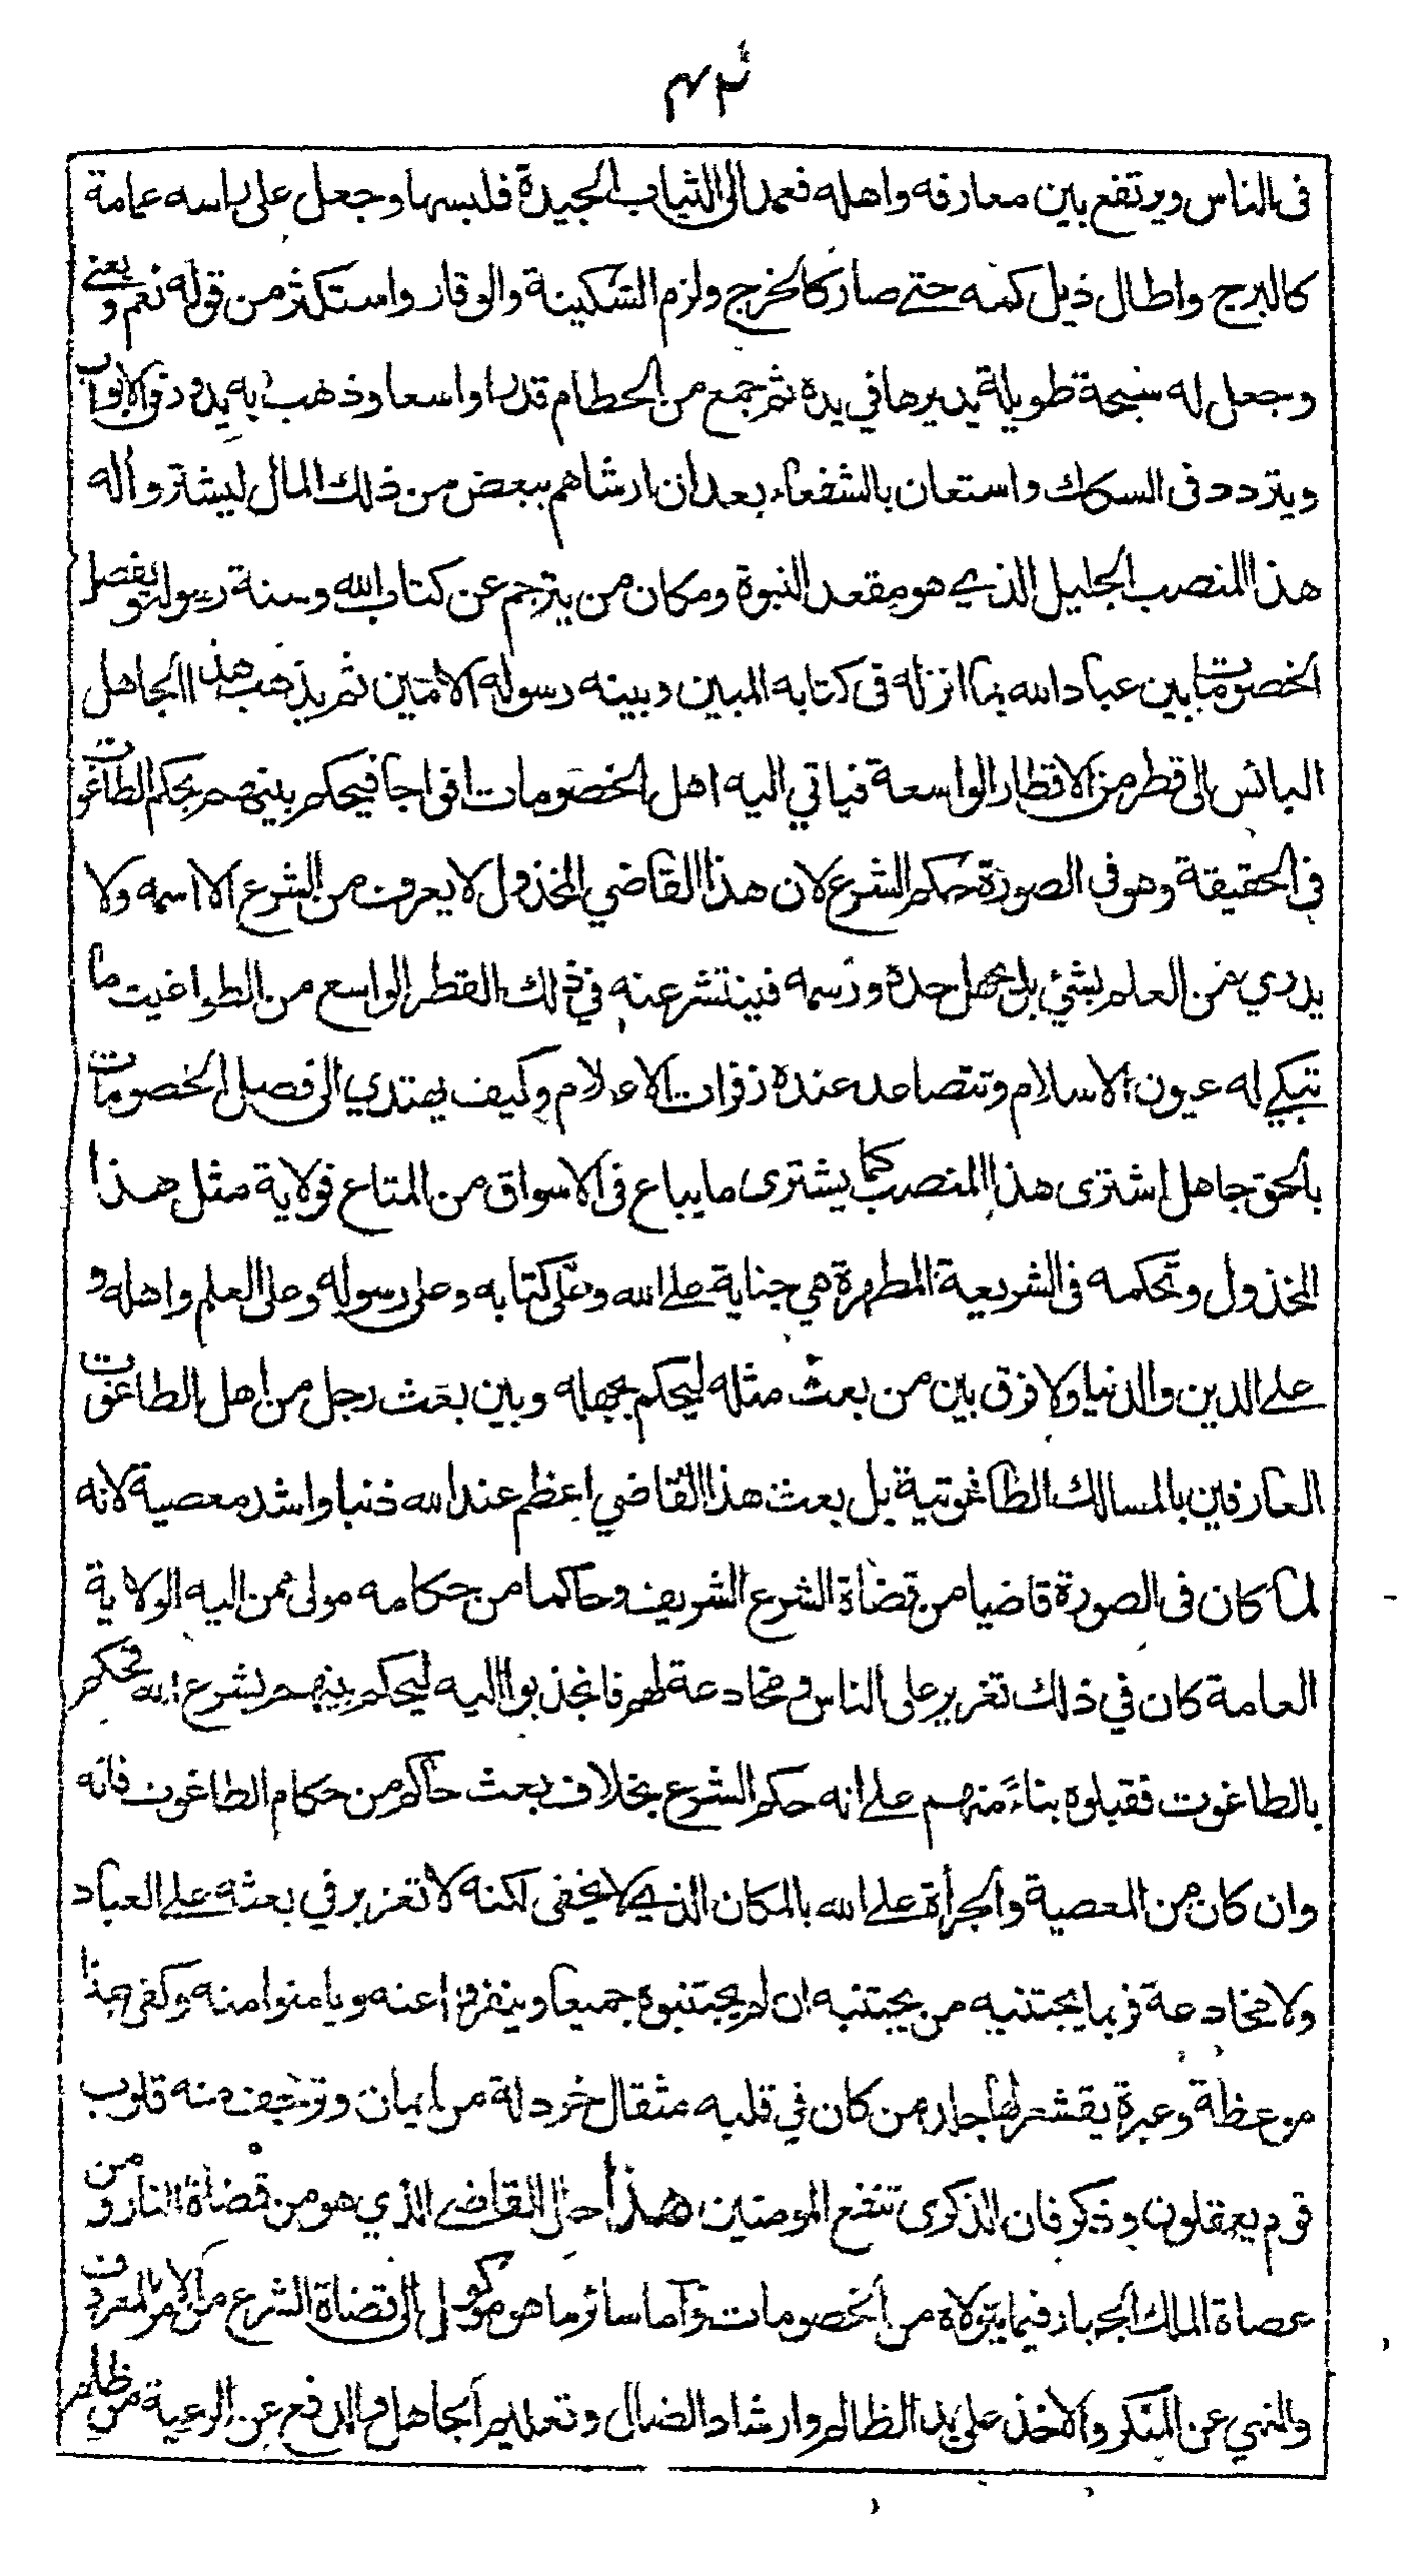 ٤٢
فى الناس ويرتفع بين معارفه واهله فعمد الى الثياب الجيدة فلبسها وجعل على راسه عمامة
كالبرج واطال ذيل كمه حتى صار كالخرج ولزم السكينة والوقار واستكثر من قوله نعم ويعنى
وجعل له سبحة طويلة يديرها في يده ثم جمع من الحطام قدرا واسعا وذهب به يدور فى الابواب
ويتردد فى السكك واستعان بالشفعاء بعد ان ارشاهم ببعض من ذلك المال ليشتروا له
هذا المنصب الجليل الذي هو مقعد النبوة ومكان من يترجم عن كتاب الله وسنة رسوله ويفصل
الخصومات بين عباد الله بما انزله فى كتابه المبين وبينه رسوله الامين ثم يذهب هذا الجاهل
البائس الى قطر من الاقطار الواسعة فياتي اليه اهل الخصومات افواجا فيحكم بينهم بحكم الطاغوت
فى الحقيقة وهو فى الصورة حكم الشرع لان هذا القاضي المخذول لا يعرف من الشرع الا اسمه ولا
يدري من العلم بشئ بل يجهل حده ورسمه فينتشر عنه في ذلك القطر الواسع من الطواغيت ما
تبكي له عيون الاسلام وتتصاعد عنده زفرات الاعلام وكيف يهتدي الى فصل الخصومات
بالحق جاهل اشترى هذا المنصب كما يشترى ما يباع فى الاسواق من المتاع فولاية مثل هذا
المخذول وتحكمه فى الشريعة المطهرة هي جناية على الله وعلى كتابه وعلى رسوله وعلى العلم واهله و
على الدين والدنيا ولا فرق بين من بعث مثله ليحكم بجهله وبين بعث رجل من اهل الطاغوت
العارفين بالمسالك الطاغوتية بل بعث هذا القاضي اعظم عند الله ذنبا واشد معصية لانه
لما كان فى الصورة قاضيا من قضاة الشرع الشريف وحاكما من حكامه مولى ممن اليه الولاية
العامة كان في ذلك تغرير على الناس ومخادعة لهم فانجذبوا اليه ليحكم بينهم بشرع الله فحكم
بالطاغوت فقبلوه بناءً منهم على انه حكم الشرع بخلاف بعث حاكم من حكام الطاغوت فانه
وان كان من المعصية والجرأة على الله بالمكان الذي لا يخفى لكنه لا تغرير في بعثه على العباد
ولا مخادعة فربما يجتنبه من يجتنبه ان لم يجتنبوه جميعا وينفروا عنه ويامنوا منه وكفى بهذا
موعظة وعبرة يقشعر لها جلد من كان في قلبه مثقال خردلة من ايمان وترجف منه قلوب
قوم يعقلون وذكر فان الذكرى تنفع المومنين هذا حال القاضي الذي هو من قضاة النار ومن
عصاة الملك الجبار فيما يتولاه من الخصومات واما سائر ما هو موكول الى قضاة الشرع من الامر بالمعروف
والنهي عن المنكر والاخذ على يد الظالم وارشاد الضال وتعليم الجاهل والدفع عن الرعية من ظلم